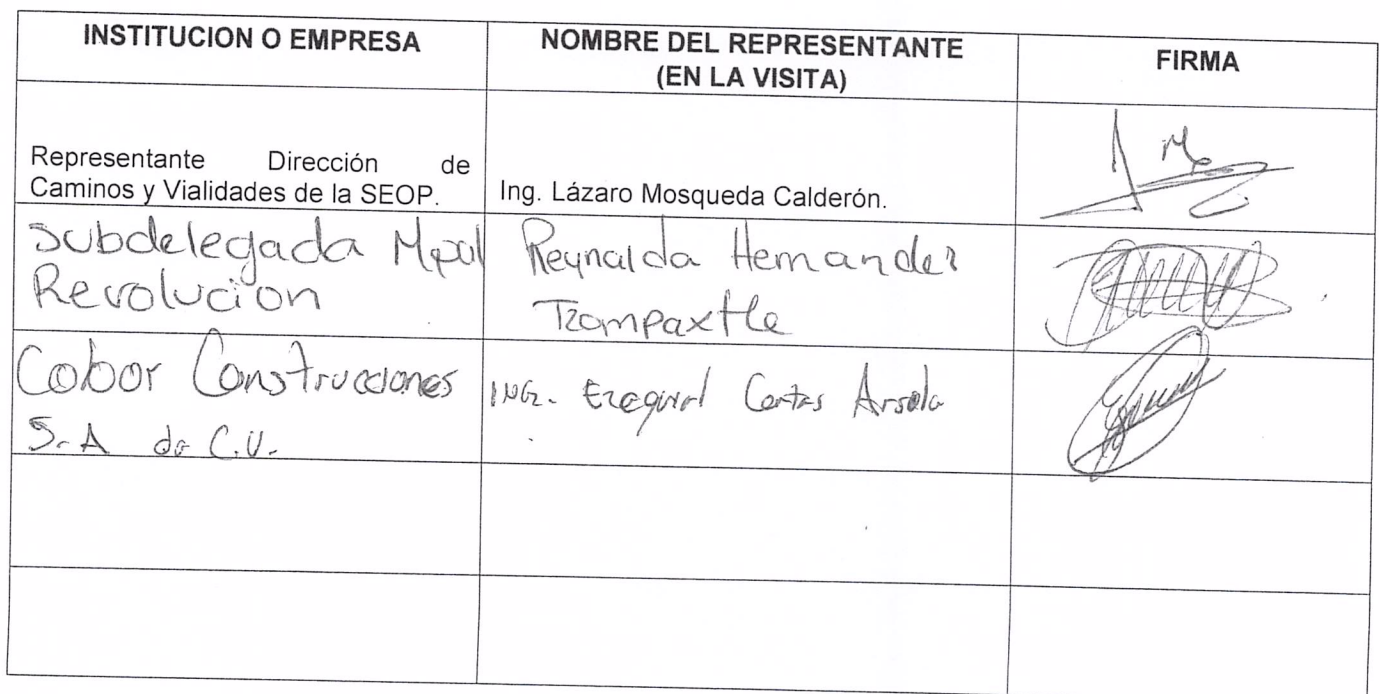 INSTITUCION O EMPRESA
NOMBRE DEL REPRESENTANTE
(EN LA VISITA)
FIRMA
Representante Dirección de
Caminos y Vialidades de la SEOP.
Ing. Lázaro Mosqueda Calderón.
Subdelegada Mpal
Revolucion
Reynalda Hernandez
Tzompaxtle
Cobor Construcciones
S.A de C.V.
ING. Ezequiel